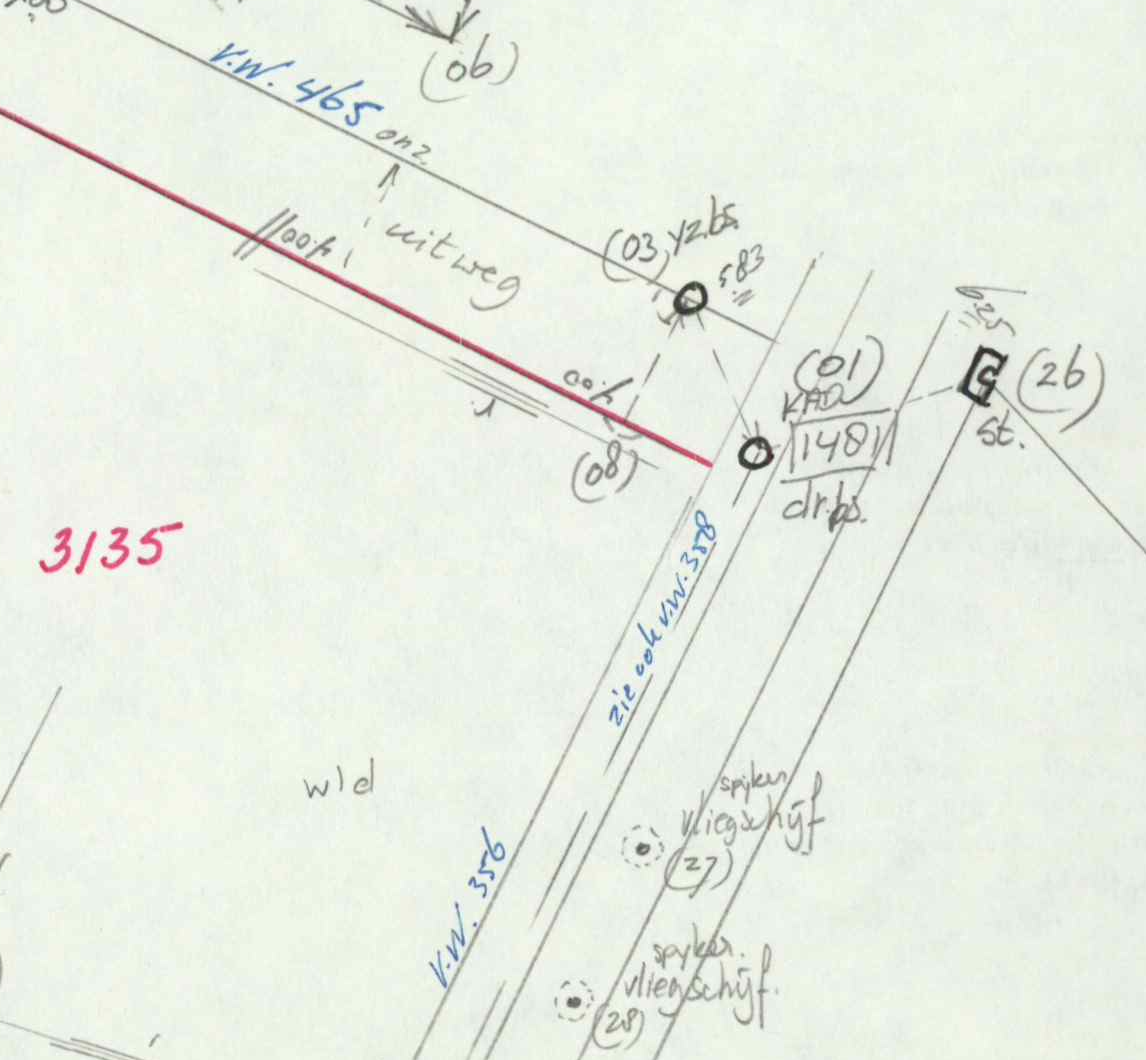 (06)
v.w. 465 onz.
uitweg
(03) yz.bs.
5.83
(01)
KAD
1481
dr.bs.
6.25
(26)
St.
(08)
3135
zie ook v.w. 358
wld
spijker
vliegschijf
(27)
V.W. 356
spyker.
vliegschijf.
(28)